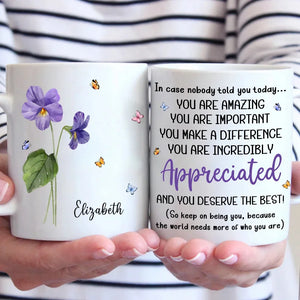 Elizabeth
In case nobody told you today...
YOU ARE AMAZING
YOU ARE IMPORTANT
YOU MAKE A DIFFERENCE
YOU ARE INCREDIBLY
Appreciated
AND YOU DESERVE THE BEST!
(So keep on being you, because
the world needs more of who you are)